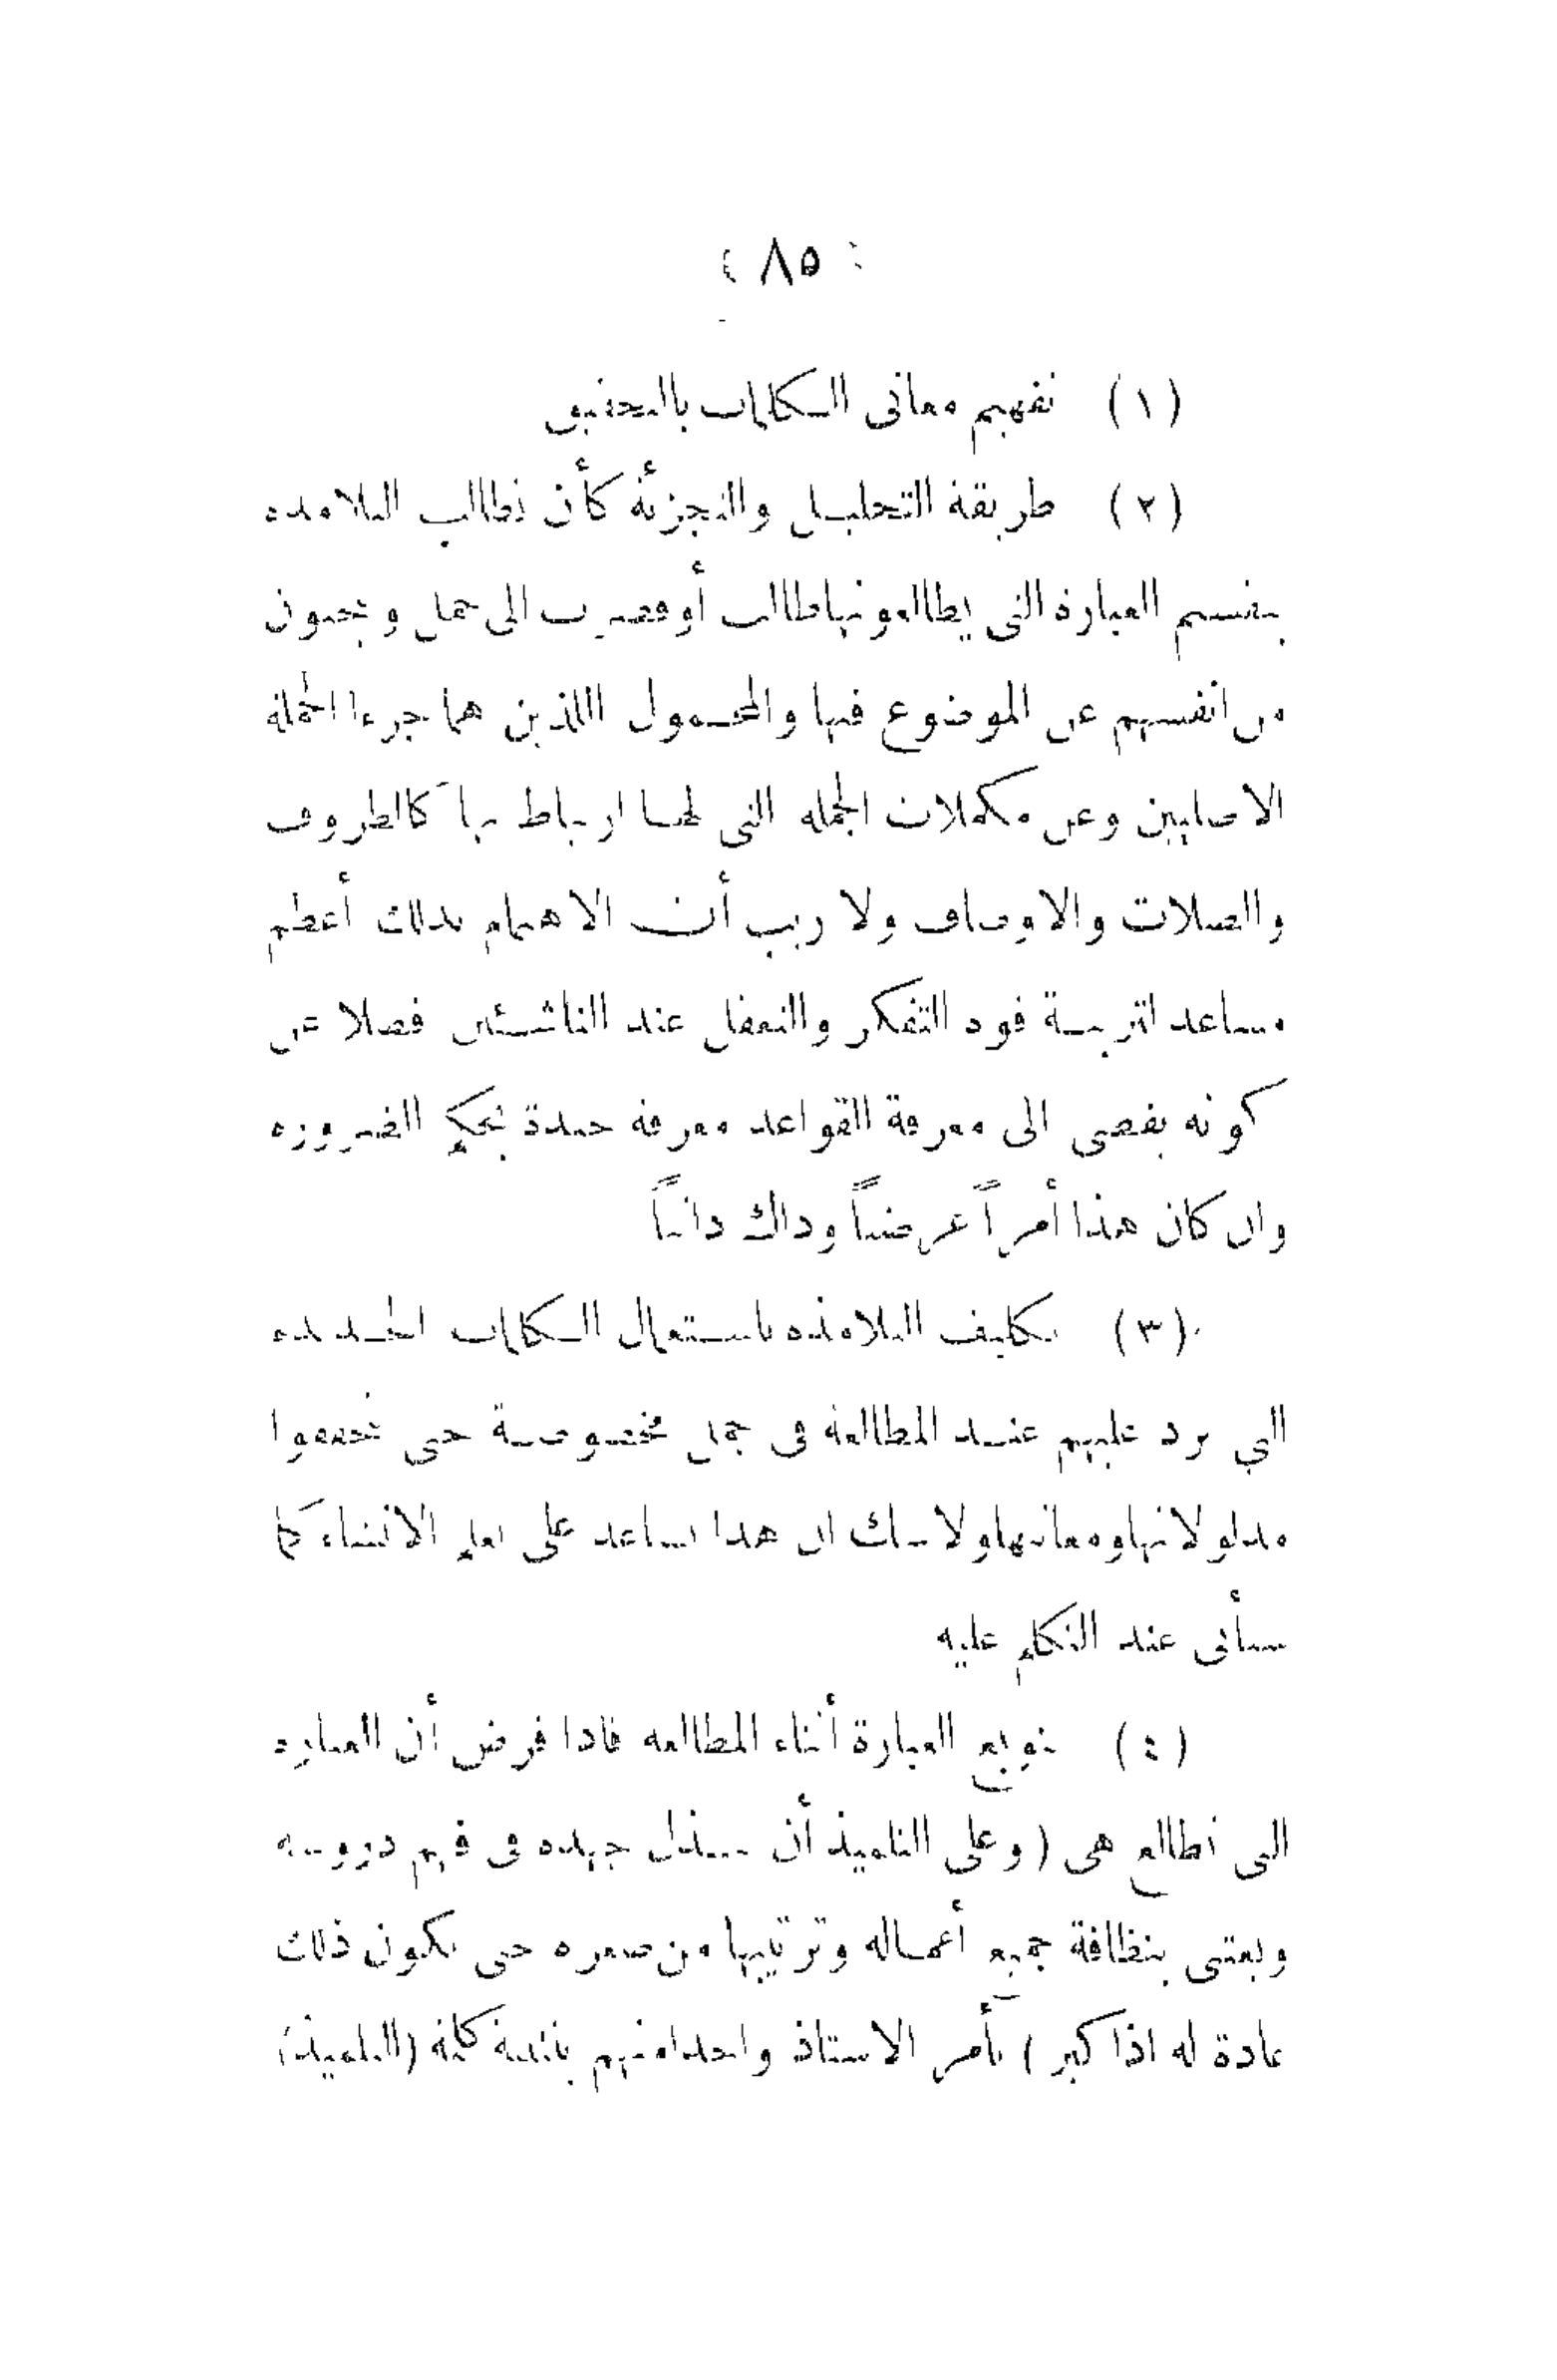 ( ٨٥ )
(١) تفهيم معانى الكلمات بالتحقيق
(٢) طريقة التحليل والتجزئة كأن نطالب التلامذه
بتقسيم العبارة التى يطالعونها طالت أو قصرت الى جمل ويبحثون
من انفسهم عن الموضوع فيها والمحمول اللذين هما جزءا الجملة
الاصليين وعن مكملات الجمله التى لها ارتباط بها كالظروف
والصلات والاوصاف ولا ريب أن الاهتمام بذلك أعظم
مساعد لتربية قوة التفكر والتعقل عند الناشئين فضلا عن
كونه يفضى الى معرفة القواعد معرفة جيدة بحكم الضرورة
وان كان هذا أمراً عرضياً وذاك ذاتياً
(٣) تكليف التلامذه باستعمال الكلمات الجديده
التي ترد عليهم عند المطالعة فى جمل مخصوصة حتى يتحققوا
مدلولاتها ومعانيها ولا شك ان هذا يساعد على تعلم الانشاء كما
سيأتى عند التكلم عليه
(٤) تنويع العبارة أثناء المطالعه فاذا فرض أن العباره
التى تطالع هى (وعلى التلميذ أن يبذل جهده فى فهم دروسه
ويعتنى بنظافة جميع أعماله وترتيبها من صغره حتى يكون ذلك
عادة له اذا كبر) يأمر الاستاذ واحدا منهم بتثنية كلمة (التلميذ)